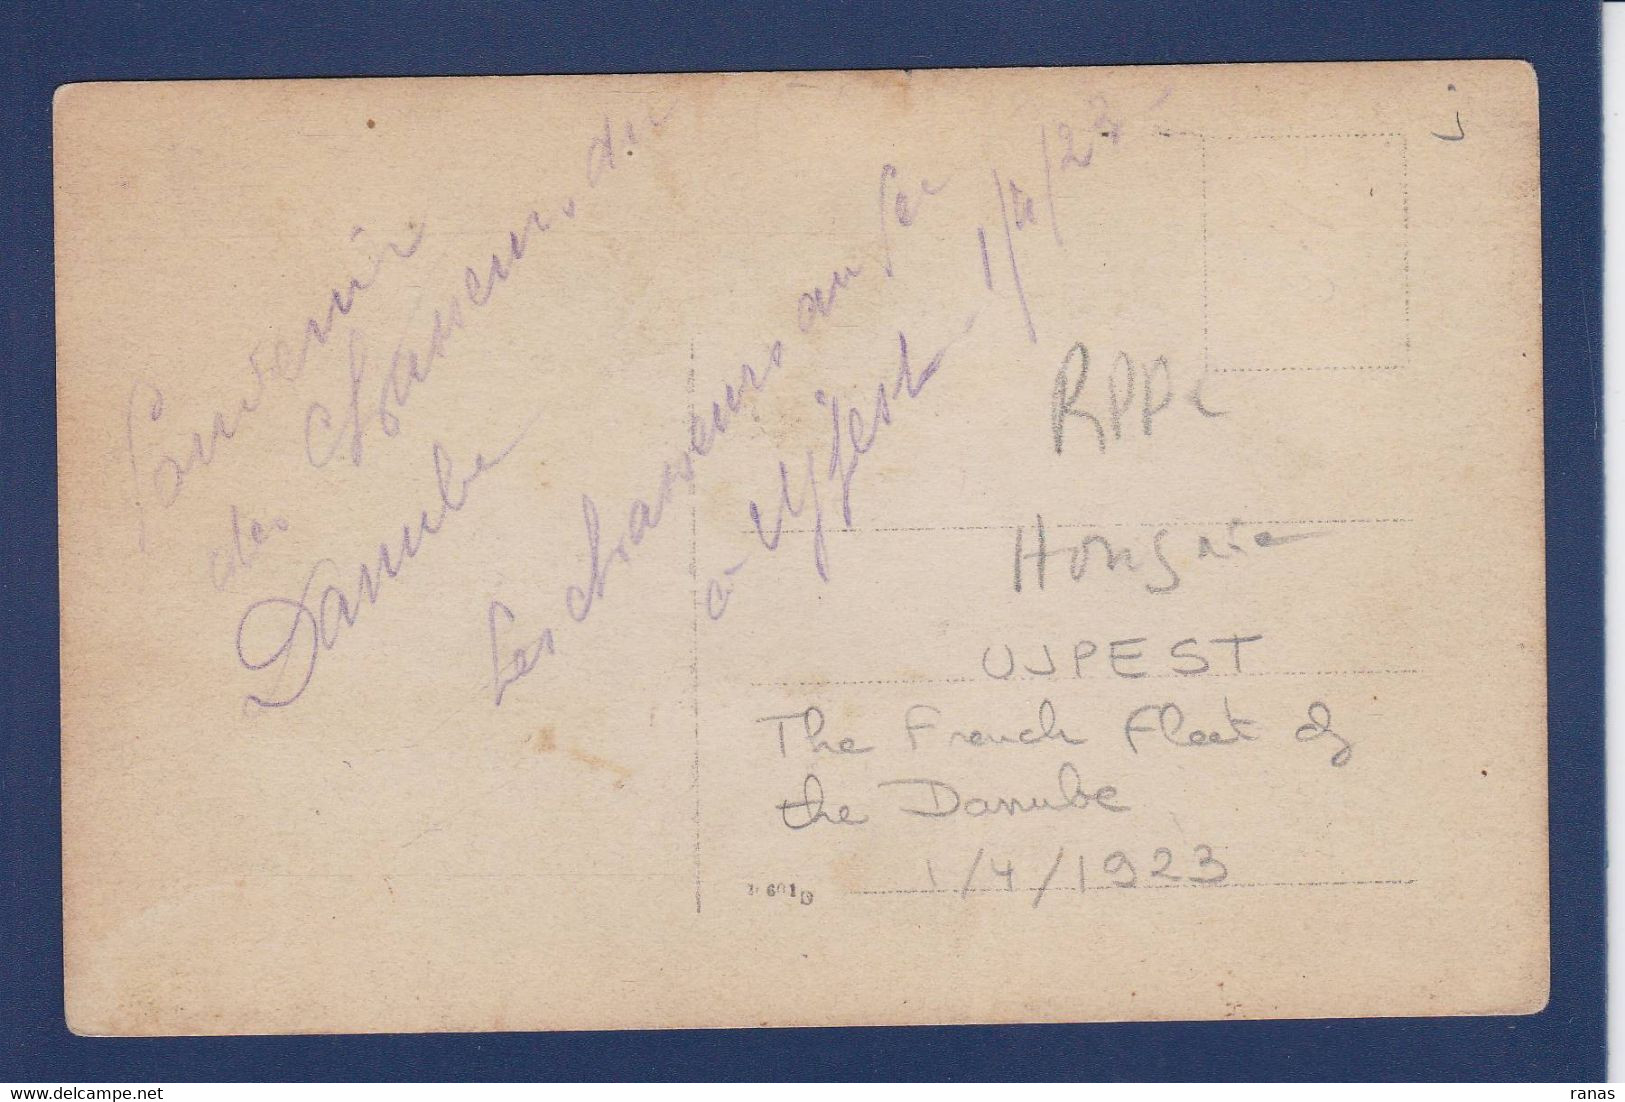 Souvenir
des Chasseurs du
Danube
Les chasseurs au Sec
à Ujpest - 1/4/23 -
RPPC
Hongrie
UJPEST
The French Fleet of
the Danube
1/4/1923
J
ranas